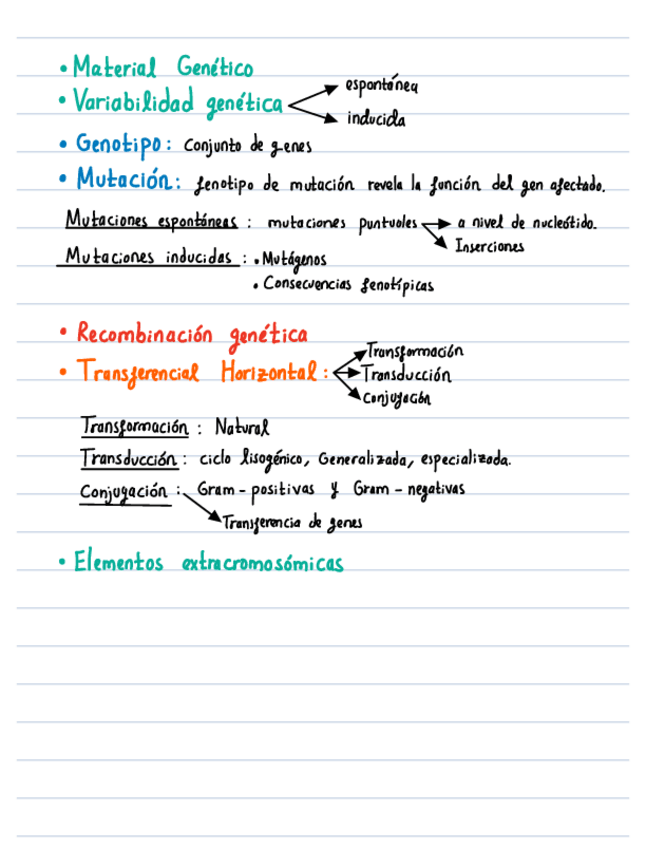 • Material Genético
• Variabilidad genética espontánea
inducida
• Genotipo: Conjunto de genes
• Mutación: fenotipo de mutación revela la función del gen afectado.
Mutaciones espontáneas: mutaciones puntuales a nivel de nucleótido.
Inserciones
Mutaciones inducidas: • Mutágenos
• Consecuencias fenotípicas
• Recombinación genética
• Transferencial Horizontal: Transformación
Transducción
Conjugación
Transformación: Natural
Transducción: ciclo lisogénico, Generalizada, especializada.
Conjugación: Gram-positivas y Gram-negativas
Transferencia de genes
• Elementos extracromosómicas